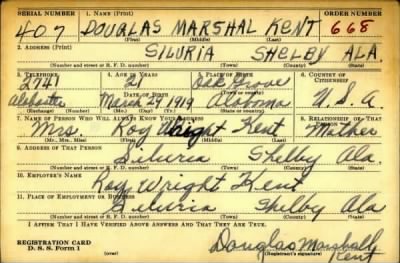 SERIAL NUMBER 1. NAME (Print) ORDER NUMBER
407 DOUGLAS MARSHAL KENT 668
(First) (Middle) (Last)
2. ADDRESS (Print)
SILURIA SHELBY ALA.
(Number and street or R. F. D. number) (Town) (County) (State)
3. TELEPHONE 4. AGE IN YEARS 5. PLACE OF BIRTH 6. COUNTRY OF CITIZENSHIP
2741 21 Oak Grove
Alabaster DATE OF BIRTH (Town or county)
March 29 1919 Alabama U.S.A
(Exchange) (Number) (Mo.) (Day) (Yr.) (State or country)
7. NAME OF PERSON WHO WILL ALWAYS KNOW YOUR ADDRESS 8. RELATIONSHIP OF THAT PERSON
Mrs. Roy Wright Kent Mother
(Mr., Mrs., Miss) (First) (Middle) (Last)
9. ADDRESS OF THAT PERSON
Siluria Shelby Ala.
(Number and street or R. F. D. number) (Town) (County) (State)
10. EMPLOYER'S NAME
Roy Wright Kent
11. PLACE OF EMPLOYMENT OR BUSINESS
Siluria Shelby Ala
(Number and street or R. F. D. number) (Town) (County) (State)
I AFFIRM THAT I HAVE VERIFIED ABOVE ANSWERS AND THAT THEY ARE TRUE.
REGISTRATION CARD
D. S. S. Form 1
Douglas Marshall
Kent
(Registrant's signature)